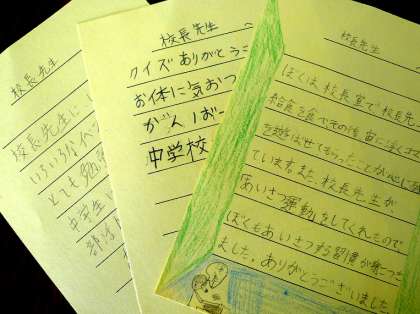 校長先生
校長先生に
いろいろな
とても勉
中学生
部活
校長先生
クイズありがとうご
お体に気おつ
がんば
中学校
校長先生
ぼくは校長室で校長先
給食を食べその後宙に浮
を遊ばせてもらったことが心に
ています。また、校長先生が、
「あいさつ運動」をしてくれたので
ぼくもあいさつする習慣が身につき
ました。ありがとうございました